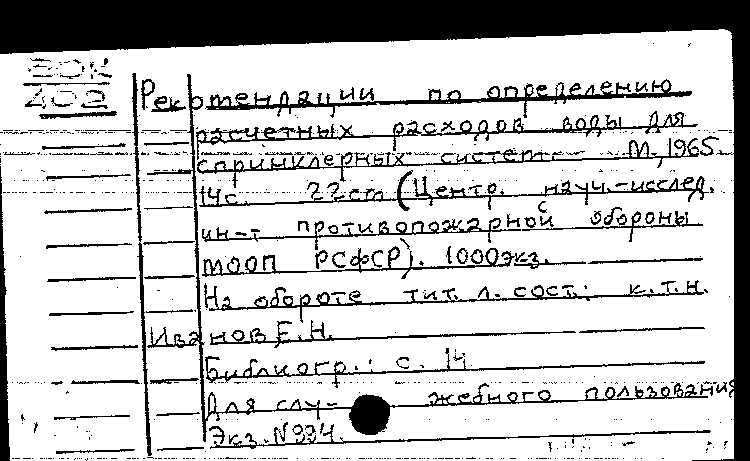 ЗОК
402
Рекомендации по определению
расчетных расходов воды для
спринклерных систем.- М., 1965.
14с. 22cm (Центр. науч.-исслед.
ин-т противопожарной обороны
МООП РСФСР). 1000экз.
На обороте тит. л. сост.: к.т.н.
Иванов, Е.Н.
Библиогр.: с. 14
Для слу- жебного пользования
Экз. N334.